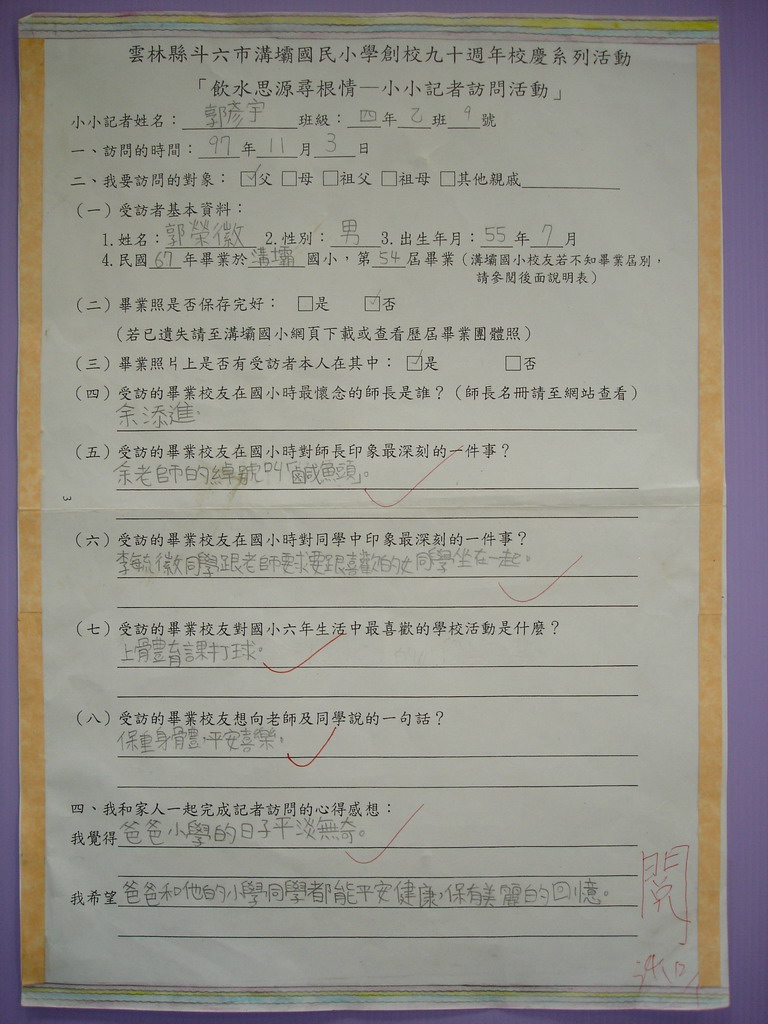 雲林縣斗六市溝壩國民小學創校九十週年校慶系列活動
「飲水思源尋根情—小小記者訪問活動」
小小記者姓名：郭彥宇 班級：四年乙班9號
一、訪問的時間：97年11月3日
二、我要訪問的對象：☑父 □母 □祖父 □祖母 □其他親戚
（一）受訪者基本資料：
1.姓名：郭榮徽 2.性別：男 3.出生年月：55年7月
4.民國67年畢業於溝壩國小，第54屆畢業（溝壩國小校友若不知畢業屆別，
請參閱後面說明表）
（二）畢業照是否保存完好：□是 ☑否
（若已遺失請至溝壩國小網頁下載或查看歷屆畢業團體照）
（三）畢業照片上是否有受訪者本人在其中：☑是 □否
（四）受訪的畢業校友在國小時最懷念的師長是誰？（師長名冊請至網站查看）
余添進。
（五）受訪的畢業校友在國小時對師長印象最深刻的一件事？
余老師的綽號叫「鹹魚頭」。
3
（六）受訪的畢業校友在國小時對同學中印象最深刻的一件事？
李毓徽同學跟老師要求要跟喜歡的女同學坐在一起。
（七）受訪的畢業校友對國小六年生活中最喜歡的學校活動是什麼？
上體育課打球。
（八）受訪的畢業校友想向老師及同學說的一句話？
保重身體，平安喜樂。
四、我和家人一起完成記者訪問的心得感想：
我覺得爸爸小學的日子平淡無奇。
我希望爸爸和他的小學同學都能平安健康，保有美麗的回憶。
閱